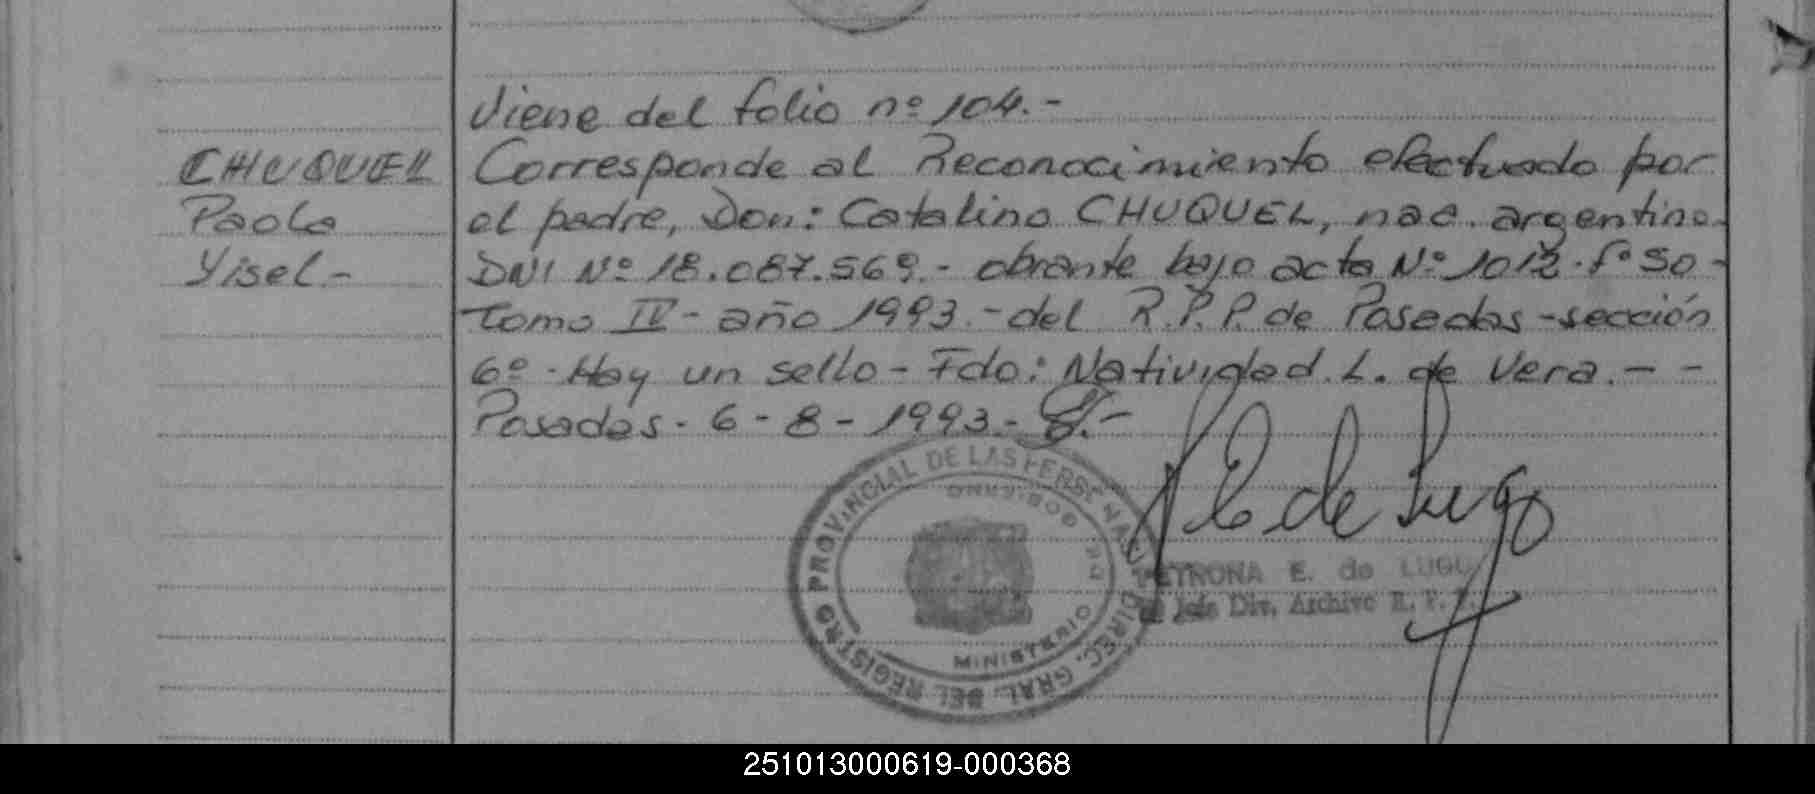 Viene del folio nº 104.-
CHUQUEL
Paola
Yisel.-
Corresponde al Reconocimiento efectuado por
el padre, Don: Catalino CHUQUEL, nac. argentina
DNI Nº 18.087.569.- obrante bajo acta Nº 1012. fº 50-
tomo IV- año 1993.- del R.P.P. de Posadas -sección
6º. Hay un sello - Fdo: Natividad. L. de Vera.- -
Posadas. 6-8-1993.-
DIREC. GRAL. DEL REGISTRO PROVINCIAL DE LAS PERSONAS
MINISTERIO DE GOBIERNO
PETRONA E. de LUGO
Jefe Div. Archivo R. P. P.
251013000619-000368